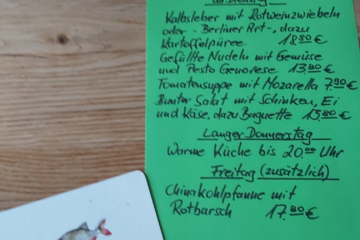 Kalbsleber mit Rotweinzwiebeln
oder - Berliner Art -, dazu
Kartoffelpüree 18.80 €
Gefüllte Nudeln mit Gemüse
und Pesto Genovese 13.80 €
Tomatensuppe mit Mozarella 7.80 €
Bunter Salat mit Schinken, Ei
und Käse, dazu Baguette 15.80 €
Langer Donnerstag
Warme Küche bis 20.00 Uhr
Freitag (zusätzlich)
Chinakohlpfanne mit
Rotbarsch 17.80 €